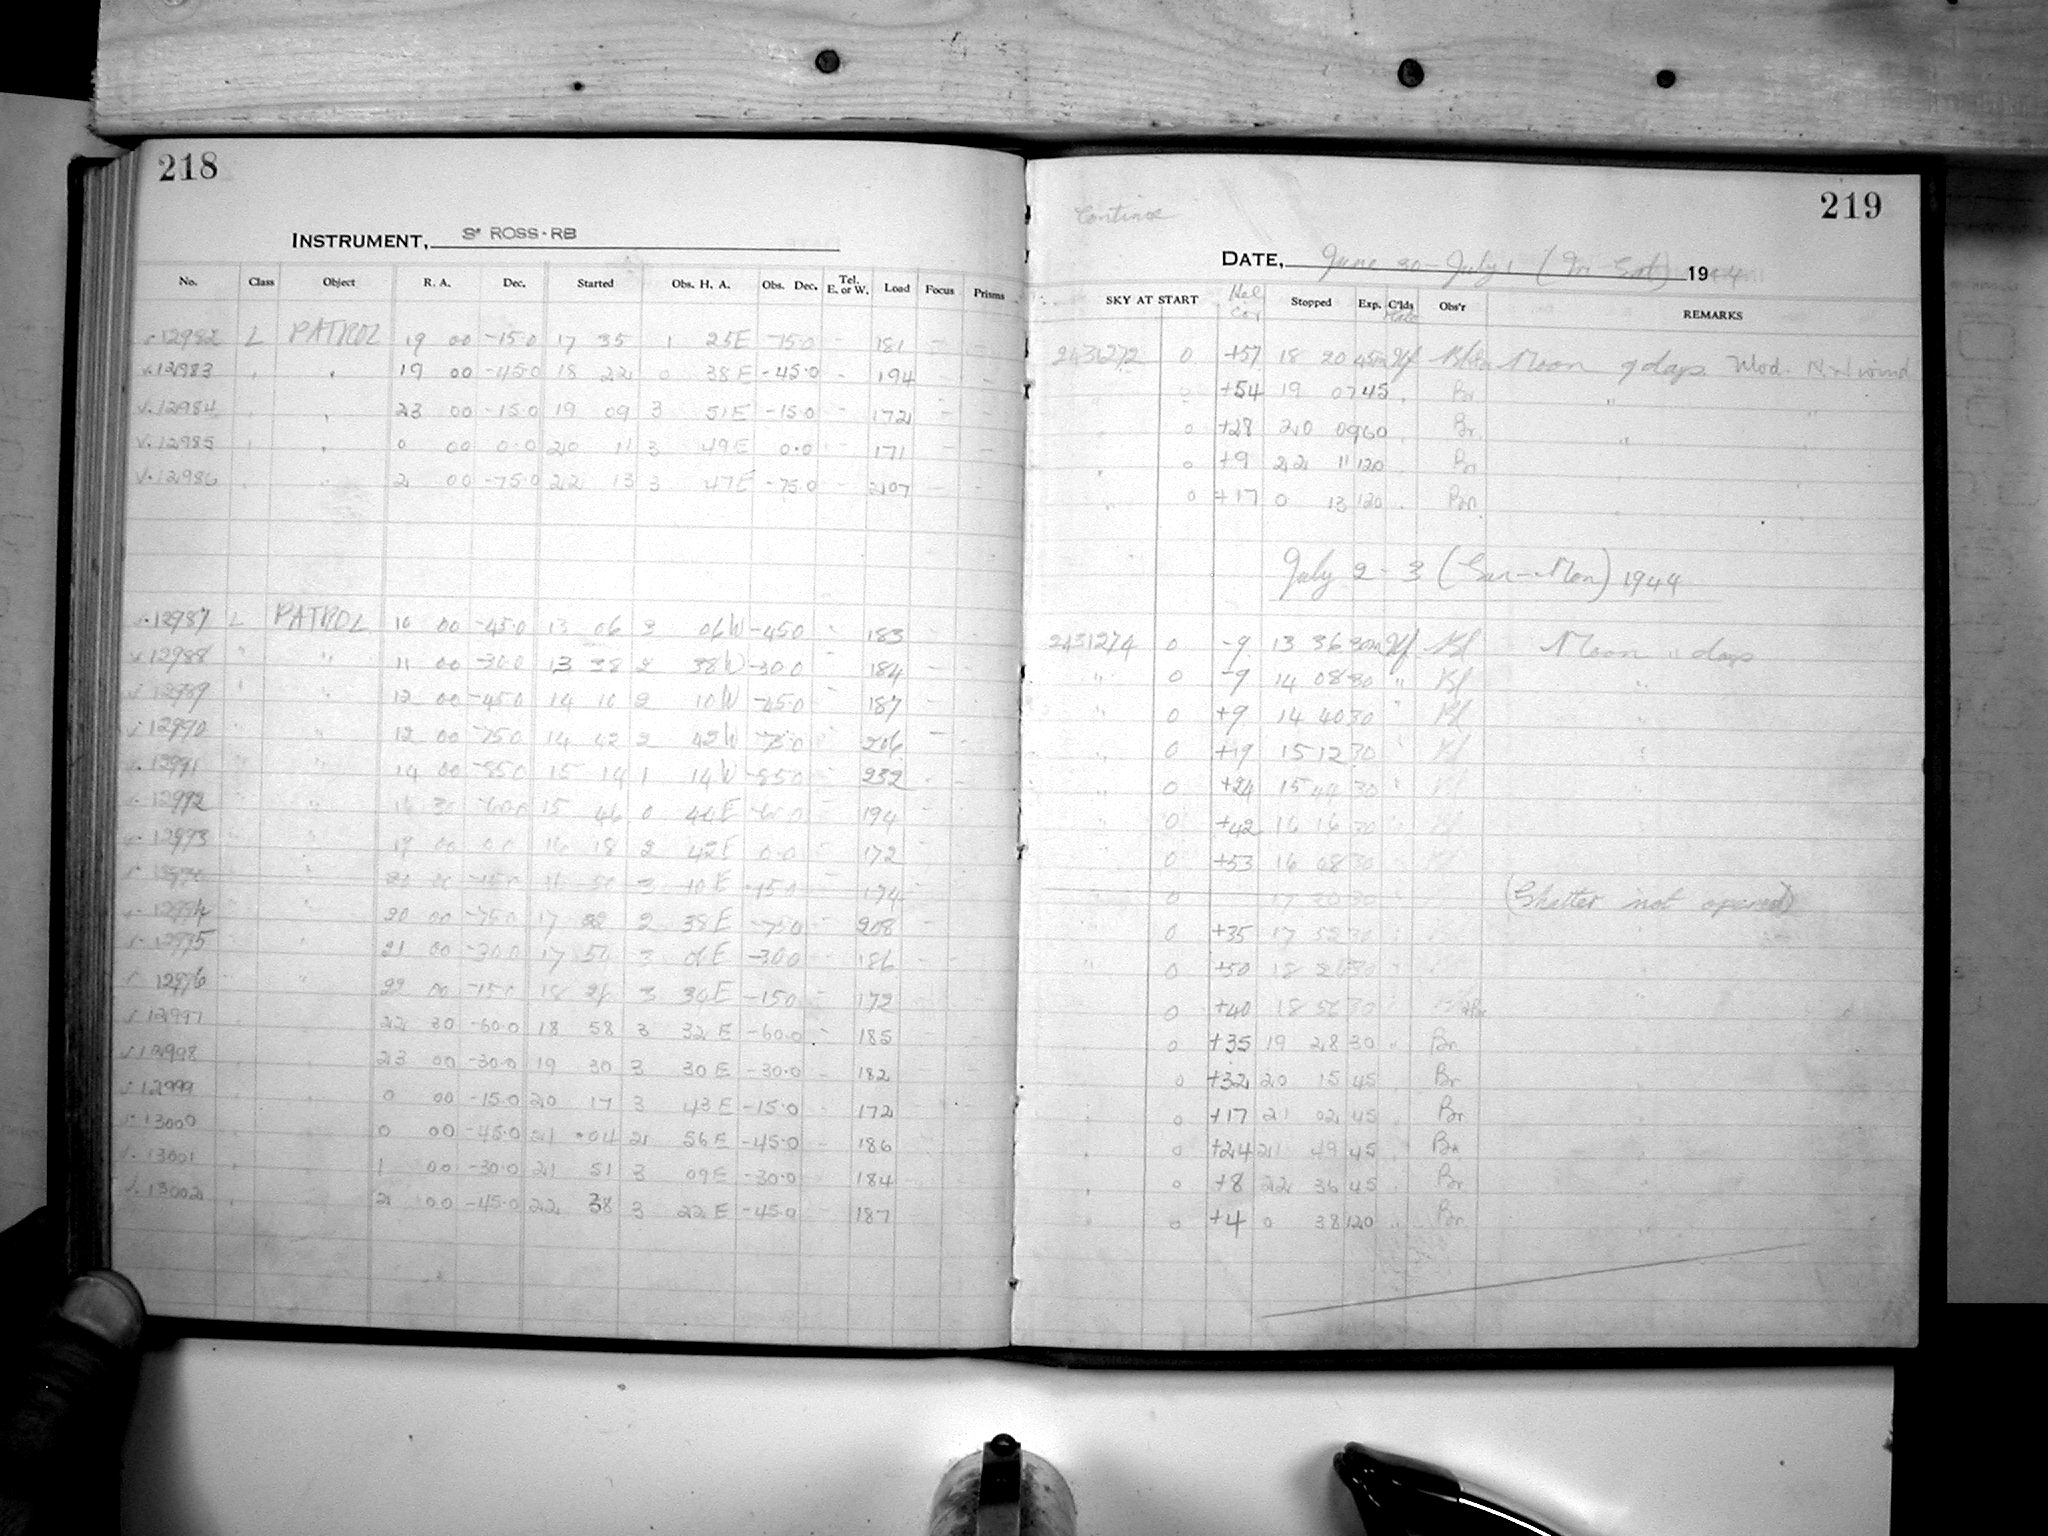 218
INSTRUMENT, 3" ROSS-RB
No. Class Object R. A. Dec. Started Obs. H. A. Obs. Dec. Tel. E. or W. Load Focus Prisms
12982 L PATROL 19 00 -15.0 17 35 1 25E -15.0 - 181 - -
12983 " " 19 00 -45.0 18 22 0 38E -45.0 - 194 - -
12984 " " 23 00 -15.0 19 09 3 51E -15.0 - 172 - -
12985 " " 0 00 0.0 20 11 3 49E 0.0 - 171 - -
12986 " " 2 00 -75.0 22 13 3 47E -75.0 - 207 - -
12987 L PATROL 10 00 -45.0 13 06 3 06W -45.0 - 183
12988 " " 11 00 -30.0 13 38 2 38W -30.0 - 184 - -
12989 " " 12 00 -45.0 14 10 2 10W -45.0 - 187 - -
12990 " " 12 00 -75.0 14 42 2 42W -75.0 - 206 - -
12991 " " 14 00 -85.0 15 14 1 14W -85.0 - 232 - -
12992 " " 16 30 -60.0 15 46 0 44E -60.0 - 194 -
12993 " " 19 00 0.0 16 18 2 42E 0.0 - 172 -
" 20 00 -15.0 16 50 3 10E -15.0 - 174
12994 " " 20 00 -75.0 17 22 2 38E -75.0 - 208 -
12995 " " 21 00 -30.0 17 54 3 06E -30.0 - 186 - -
12996 " " 22 00 -15.0 18 26 3 34E -15.0 - 172 - -
12997 " " 22 30 -60.0 18 58 3 32E -60.0 - 185 - -
12998 " " 23 00 -30.0 19 30 3 30E -30.0 - 182 - -
12999 " " 0 00 -15.0 20 17 3 43E -15.0 - 172
13000 " " 0 00 -45.0 21 04 2 56E -45.0 - 186
13001 " " 1 00 -30.0 21 51 3 09E -30.0 - 184
13002 " " 2 00 -45.0 22 38 3 22E -45.0 - 187
219
Continue
DATE, June 30 - July 1 (Fri-Sat) 1944
SKY AT START Hel Cor Stopped Exp. C'lds Obs'r REMARKS
2431272 0 +57 18 20 45m Moon 9 days Mod. N.W wind
" 0 +54 19 07 45 " Br " "
" 0 +28 20 09 60 " Br "
" 0 +9 22 11 120 " Br "
" 0 +17 0 13 120 " Br "
July 2-3 (Sun-Mon) 1944
2431274 0 -9 13 36 30m Bl Moon 11 days
" 0 -9 14 08 30 " Bl "
" 0 +9 14 40 30 " Bl "
" 0 +19 15 12 30 " Bl "
" 0 +24 15 44 30 " Bl "
" 0 +42 16 16 30 " Bl
" 0 +53 16 48 30 Bl
0 17 20 30 (Shutter not opened)
" 0 +35 17 52 30 "
" 0 +50 18 26 30 "
0 +40 18 56 30 "
0 +35 19 28 30 " Br "
0 +32 20 15 45 Br "
0 +17 21 02 45 Br "
0 +24 21 49 45 Br "
0 +8 22 36 45 Br "
0 +4 0 38 120 Br "